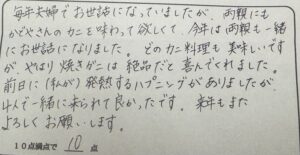 毎年夫婦でお世話になっていましたが、両親にも
かどやさんのカニを味わって欲しくて、今年は両親も一緒
にお世話になりました。どのカニ料理も美味しいです
が、やはり焼きガニは絶品だと喜んでくれました。
前日に(私が)発熱するハプニングがありましたが、
4人で一緒に来られて良かったです。来年もまた
よろしくお願いします。
10点満点で 10 点